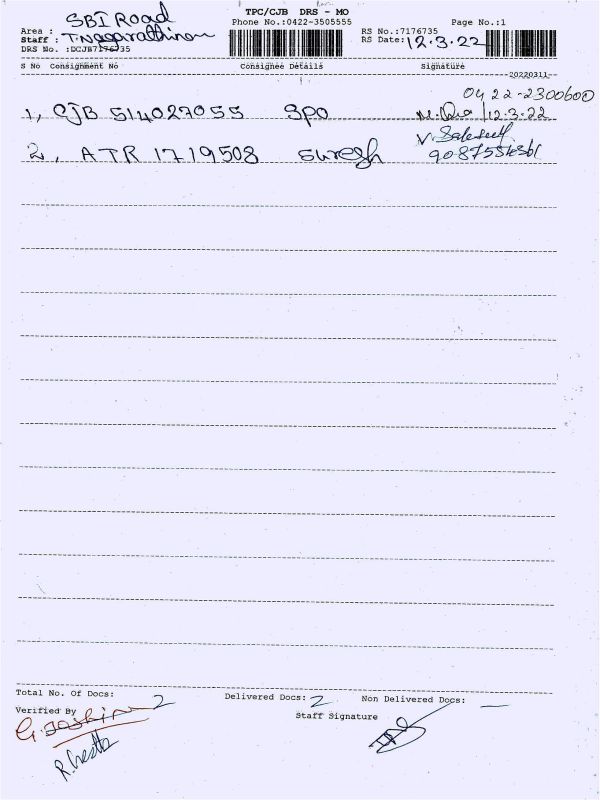 SBI Road
TPC/CJB DRS - MO
Area :
Phone No.:0422-3505555
Page No.:1
Staff : T. Nagarathinam
RS No.:7176735
DRS No. :DCJB7176735
RS Date: 12.3.22
S No Consignment No Consignee Details Signature
20220311
0422-2300600
1, CJB 514027055 SPO 12.3.22
2, ATR 1719508 Suresh
Total No. Of Docs: 2 Delivered Docs: 2 Non Delivered Docs: —
Verified By
Staff Signature